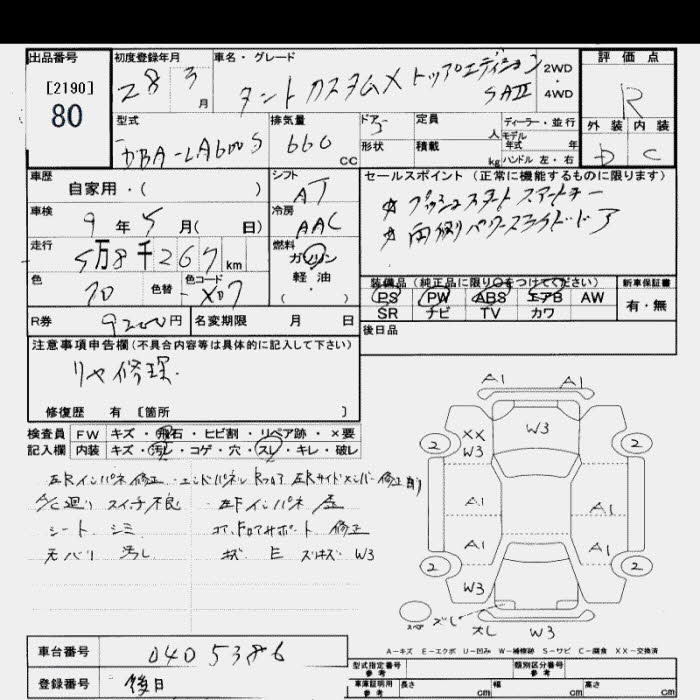 出品番号
[2190]
80
初度登録年月
28 3月
車名・グレード
タントカスタムX トップエディション
SAⅡ
2WD
・
4WD
評価点
R
外装 内装
D C
型式
DBA-LA600S
排気量
660 CC
ドアー
5
形状
定員
人
積載
kg
ディーラー・並行
モデル
年式 年
ハンドル 左・右
車歴
自家用・( )
シフト
AT
車検
9年5月( 日)
冷房
AAC
走行
5万8千267km
燃料
ガソリン
軽油
( )
色
色替
色コード
X07
R券
9200円
名変期限 月 日
セールスポイント (正常に機能するものに限ります)
☆ プッシュスタート スマートキー
☆ 両側パワースライドドア
装備品 (純正品に限り○をつけてください)
PS PW ABS エアB AW
SR ナビ TV カワ
新車保証書
有・無
後日品
注意事項申告欄(不具合内容等は具体的に記入して下さい)
リヤ修理.
修復歴 有 〔箇所 〕
検査員
記入欄
FW キズ・飛石・ヒビ割・リペア跡・×要
内装 キズ・汚レ・コゲ・穴・スレ・キレ・破レ
左Rインパネ修正 エンドパネル Rフロア 左Rサイドメンバー修正
A/C廻り スイッチ不良 左Fインパネ
シート シミ コアットロアサポート 修正
天バリ 汚し キズ E スリキズ W3
A1 A1
W3
2 2
XX
W3
A1
A1
A1
2 2
W3
スペア
ズレ
大し W3
A-キズ E-エクボ U-凹み W-補修跡 S-サビ C-腐食 XX-交換済
車台番号
0405386
登録番号
後日
型式指定番号
参考
類別区分番号
参考
車庫証明用
参考
長さ cm 幅 cm 高さ cm